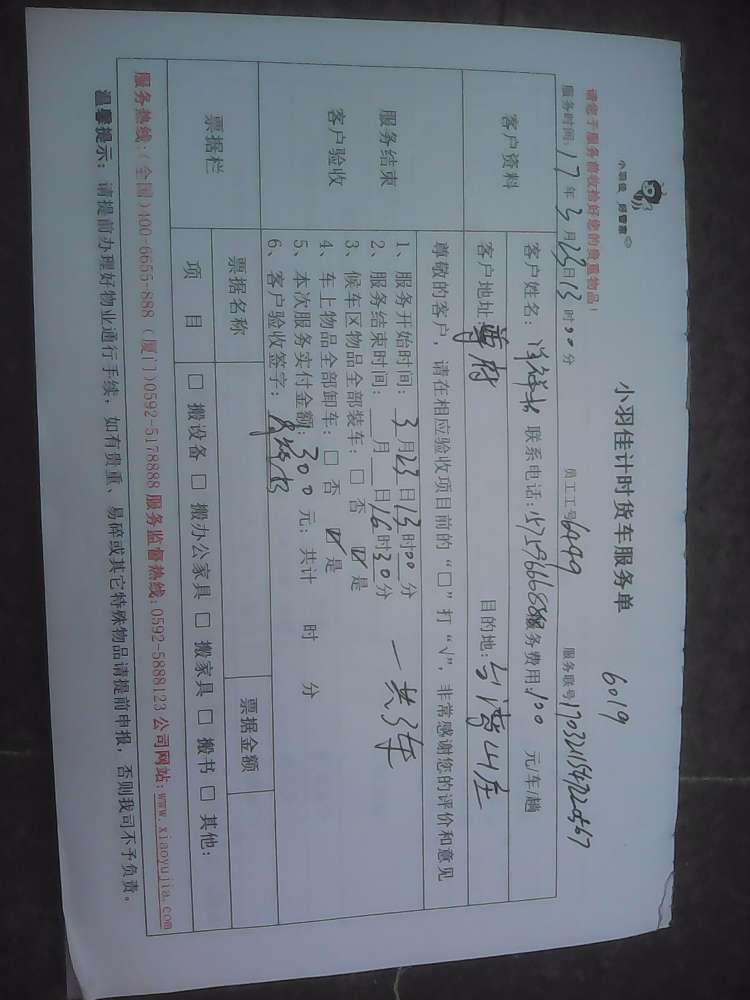 小羽佳 好管家
小羽佳计时货车服务单
6019
请您于服务前收拾好您的贵重物品!
服务时间:17年3月23日13时00分 员工工号6499 服务联号170321154722567
客户资料
客户姓名: 联系电话: 服务费用:100 元/车/趟
客户地址: 尊府 目的地:台湾山庄
服务结束
客户验收
尊敬的客户,请在相应验收项目前的“□”打“√”,非常感谢您的评价和意见
1、服务开始时间:3月23日13时00分
2、服务结束时间:__月__日16时30分
一共3车
3、候车区物品全部装车:□ 否 ☑ 是
4、车上物品全部卸车:□ 否 ☑ 是
5、本次服务实付金额:300元;共计 时 分
6、客户验收签字:
票据栏
票据名称
票据金额
项目
□ 搬设备 □ 搬办公家具 □ 搬家具 □ 搬书 □ 其他:
服务热线:(全国)400-6655-888 (厦门)0592-5178888 服务监督热线:0592-5888123 公司网站:www.xiaoyujia.com
温馨提示:请提前办理好物业通行手续,如有贵重、易碎或其它特殊物品请提前申报,否则我司不予负责。